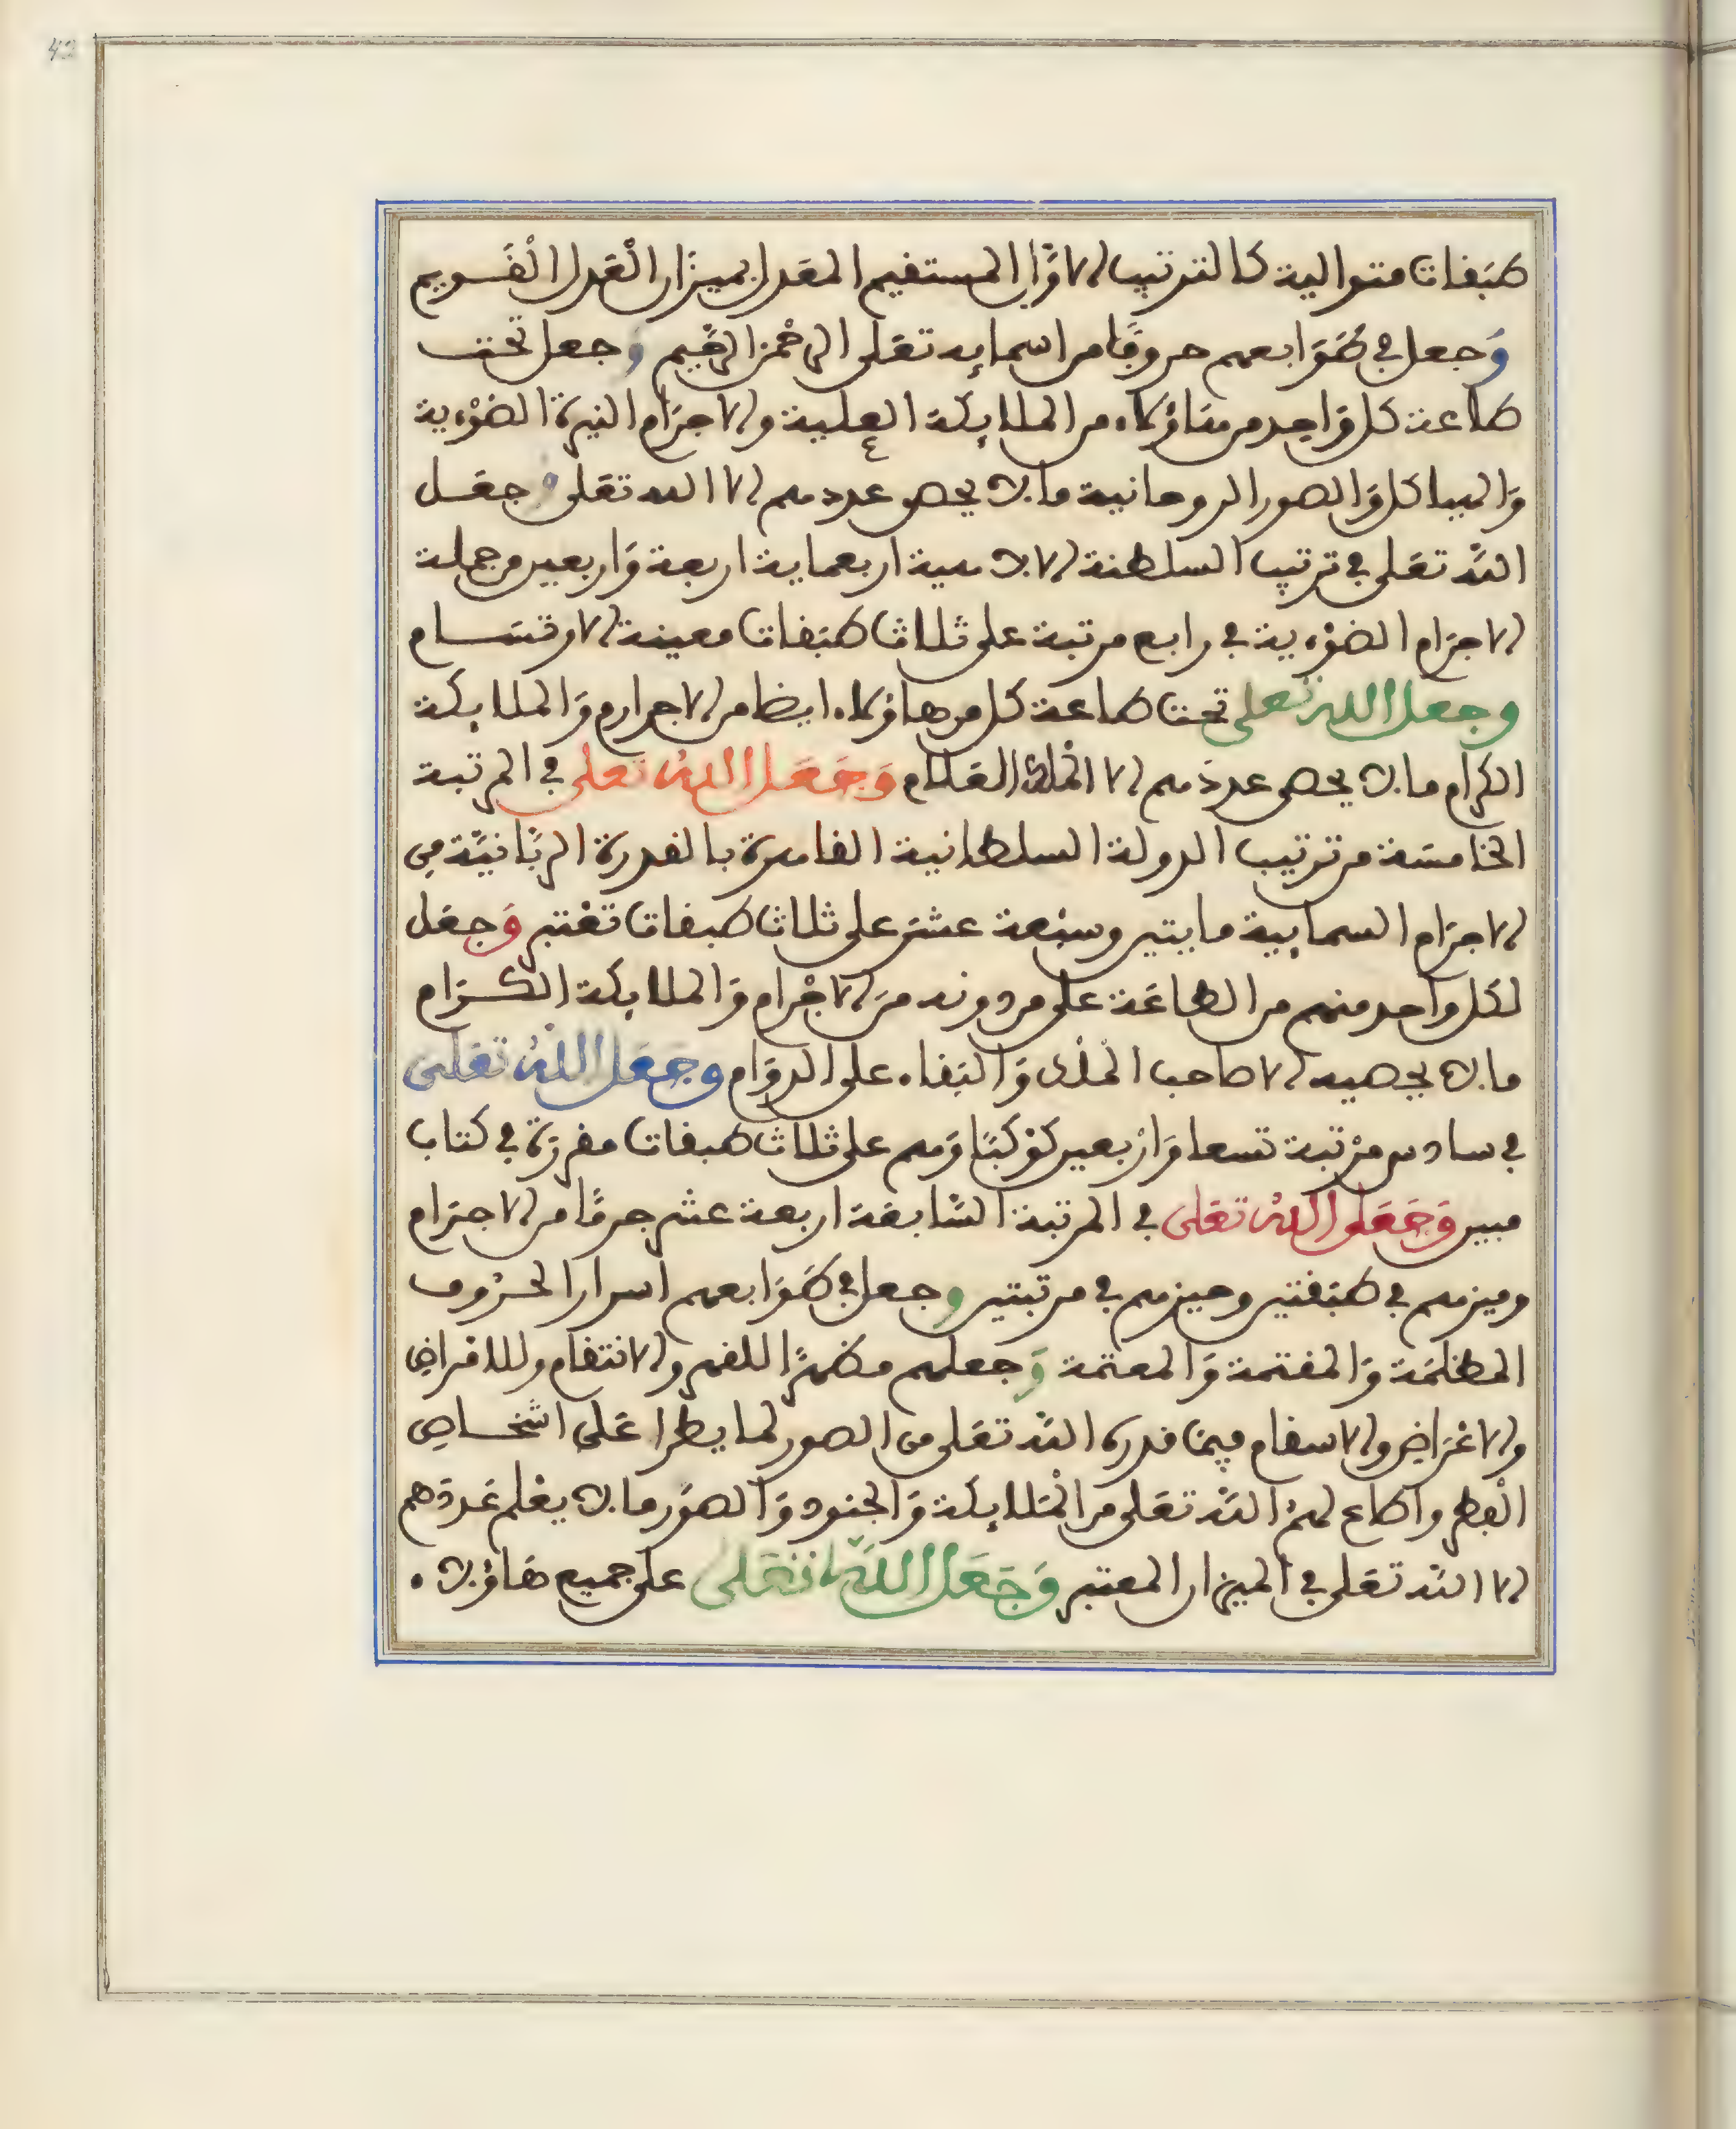 42
طَبَقات متوالية كالترتيب الاوّل المستقيم المعَدل بميزَان الْعَدل الْقَـويم
وَجعل في طَوَابعهم حروفًا من اسمايه تعَلى الرحْمن الرّحِيم وَجعل تحت
طاعة كل وَاحِد من هَاؤلاء من الملايكة العلية والاجرَام النيرة الضوْءية
وَالهياكل وَالصور الروحانية ما لا يحصى عددهم الا الله تعَلى وجعَـل
الله تعَلى في ترتيب السلطنة الالاهية اربعماية اربعة وَاربعين من جملة
الاجرَام الضوْءية في رابع مرتبة على ثلاث طبَقات معينة الارتسَـام
وجعل الله تعلى تحت طاعة كل من هاؤلاء ايضا من الاجرام وَالملايكة
الكرام ما لا يحصى عددهم الا الْملك العَلام وَجَعَل اللهُ تعلى في المرتبة
الخامسَة من ترتيب الدولة السلطانية القاهرة بالقدرة الربّانيّة من
الاجرَام السمايية مايتين وسبْعة عشَر على ثلاث طبقات تعْتبر وَجعَل
لكَل واحد منهم من الطاعَة على من دونه منَ الاجْرام وَالملايكة الكـرَام
ما لا يحصيه الا صاحب الْملْك وَالبَقاء على الدوَام وجَعَل اللهُ تعَلى
في سادس مرْتبة تسعا وَارْبعين كوْكبًا وَهم على ثلاث طبقات مفرزَة في كتاب
مبين وَجَعَل اللهُ تعَلى في المرتبة السّابعَة اربعة عشر جرمًا من الاجرَام
وميزهم في طبَقتين وحيزهم في مرتبتين وجعل في طَوَابعهم اسرار الحـرُوف
المظلمَة وَالمقتمة وَالمعتمة وَجعلهم مظهرًا للقهر والانتقام وللامراض
والاغرَاض والاسقام فيمَا قدره الله تعَلى من الصور لما يطرا عَلى اشخـاص
الْبطر واطاع لهمُ الله تعَلى من الْمَلايكة وَالجنود وَالصوَر ما لا يعْلم عَددَهم
الا الله تعَلى في الميزان المعتبر وَجَعَل اللهُ تعَلى على جميع هَاؤلا .